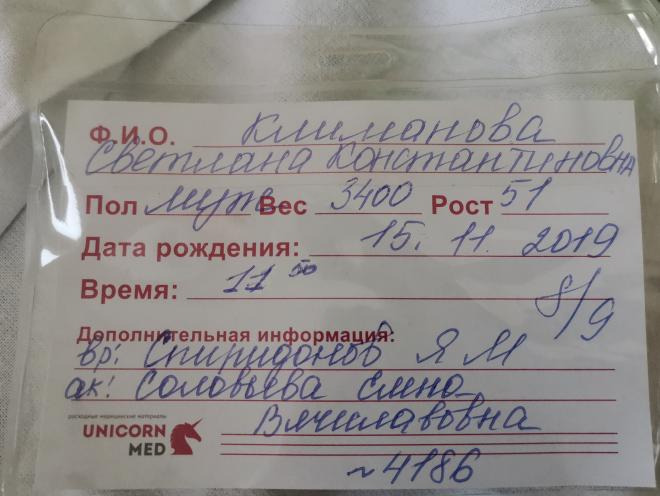 Ф.И.О. Климанова
Светлана Константиновна
Пол муж Вес 3400 Рост 51
Дата рождения: 15. 11. 2019
Время: 11 50
8/9
Дополнительная информация:
вр: Спиридонов Я М
ак: Соловьева
Вячиславовна
расходные медицинские материалы
UNICORN
MED
~4186